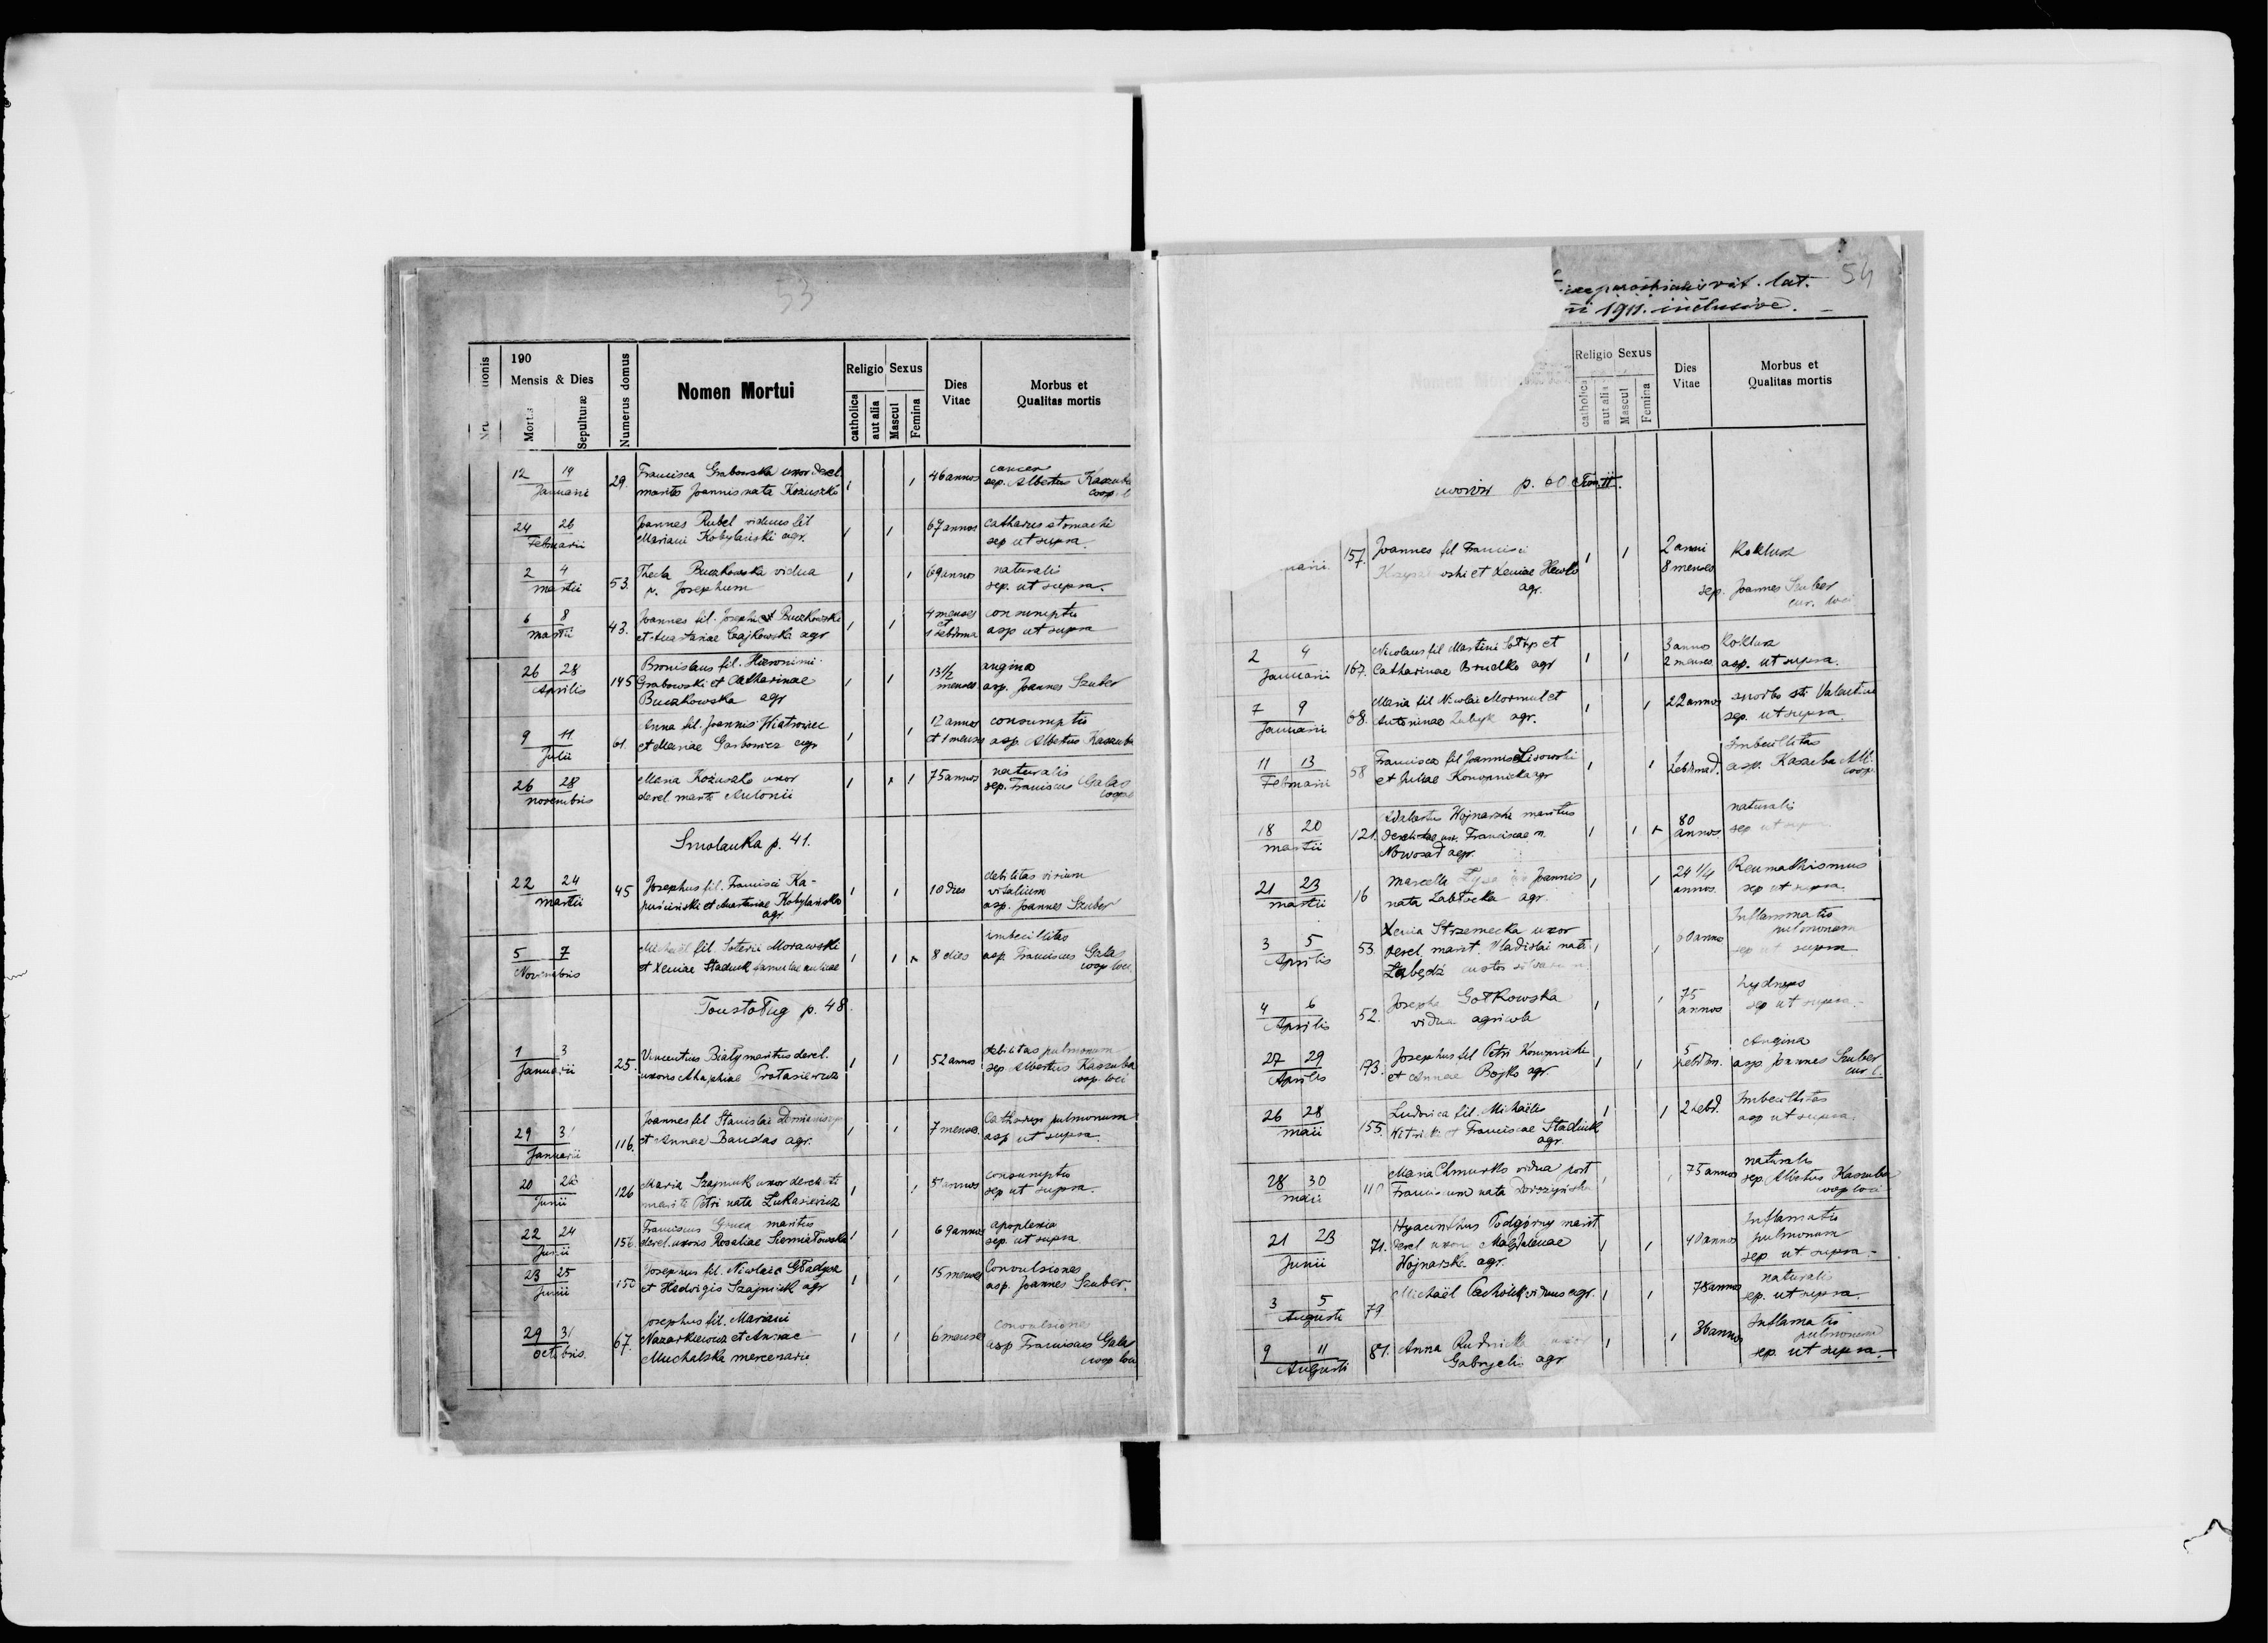 53
190
Mensis & Dies
Mortis
Sepulturæ
Numerus domus
Nomen Mortui
Religio
catholica
aut alia
Sexus
Mascul
Femina
Dies
Vitae
Morbus et
Qualitas mortis
12 14
Januarii
29.
Francisca Grabowska uxor derel.
mariti Joannis nata Kożuszko
46 annos
cancer
sep. Albertus Kaszuba
coop. l
24 26
Februarii
Joannes Rubel viduus fil
Mariani Kobylański agr.
67 annos
catharus stomachi
sep ut supra.
2 4
martii
53.
Thecla Buczkowska vidua
p. Josephum
69 annos
naturalis
sep. ut supra.
6 8
martii
43.
Joannes fil. Josephi Buczkowski
et Anastasiae Czajkowska agr
4 menses
et
1 hebdoma
consumptio
asp ut supra
26 28
Aprilis
145
Bronislaus fil. Hieronimi
Grabowski et Catharinae
Buczkowska agr
13 1/2
menses
angina
asp. Joannes Szuber
9 11
Julii
61.
Anna fil. Joannis Wiatrowicz
et Mariae Garbowicz agr
12 annos
et 1 mensis
consumptio
asp. Albertus Kaszuba
26 28
novembris
Maria Kożuszko uxor
derel marito Antonii
75 annos
naturalis
sep. Franciscus Galas
Smolanka p. 41.
22 24
martii
45
Josephus fil. Francisci Ka-
puściński et Anastasiae Kobylańska
agr.
10 dies
debilitas virium
vitalium
asp. Joannes Szuber
5 7
Novembris
Michaël fil. Soterii Morawski
et Xeniae Stadnik famulae aulicae
8 dies
imbecillitas
asp. Franciscus Galas
coop loci
Toustoług p. 48.
1 3
Januarii
25.
Vincentius Biały maritus derel.
uxoris Ahaphiae Protasiewicz
52 annos
debilitas pulmonum
sep Albertus Kaszuba
coop. loci
29 31
Januarii
116.
Joannes fil Stanislai
et Annae Bandas agr.
7 menses.
Catharus pulmonum
asp ut supra.
20
Junii
126
Maria Szajniuk uxor derelicti
mariti Petri nata Łukasiewicz
51 annos
consumptio
sep ut supra.
22 24
Junii
156.
Franciscus Gruca maritus
derel. uxoris Rosaliae Siemiatowska
69 annos
apoplexia
sep. ut supra
23 25
Junii
150
Josephus fil. Nicolai Gładysz
et Hedvigis Szajniuk agr
15 menses
Convulsiones
asp. Joannes Szuber.
29 31
Octobris.
67.
Josephus fil. Mariani
Nazarkiewicz et Annae
Muchalska mercenarii
6 menses
Convulsiones
asp Franciscus Galas
coop loci
54
parochialis rit. lat.
1911. inclusive.
Religio
catholica
aut alia
Sexus
Mascul
Femina
Dies
Vitae
Morbus et
Qualitas mortis
p. 60. Tom. II.
157.
Joannes fil Francisci
et Xeniae Hewko
agr.
2 anni
8 menses
Koklusz
sep. Joannes Szuber
cur. loci
2 4
Januarii
167.
Nicolaus fil Martini Sotys et
Catharinae Brudko agr
3 annos
2 menses
Koklusz
asp. ut supra.
7 9
Januarii
68.
Maria fil Nicolai Mormul et
Antoninae Zabyk agr.
22 annos
morbo sti Valentini
sep. ut supra.
11 13
Februarii
58
Francisca fil Joannis Lisowski
et Juliae Konopnicka agr
2 ebdmad.
Imbecillitas
asp. Kaszuba Alb.
coop.
18 20
martii
121.
Adalbertus Wojnarski maritus
derelictae ux. Franciscae n.
Nowosad agr.
80
annos
naturalis
sep ut supra
21 23
martii
16
Marcella Łysa Joannis
nata Zabłocka agr.
24 1/4
annos.
Reumathismus
sep ut supra.
3 5
Aprilis
53.
Xenia Strzemecka uxor
derel. marit. Vladislai nata
Łabędź custos silvarum
60 annos
Inflammatio
pulmonum
sep ut supra
4 6
Aprilis
52.
Josepha Gotkowska
vidua agricola
75
annos
hydrops
sep ut supra.
27 29
Aprilis
173.
Josephus fil Petri Konopnicki
et Annae Bojko agr.
5
hebdm.
Angina
asp. Joannes Szuber
cur l.
26 28
maii
155.
Ludovica fil. Michaëlis
et Franciscae Stadnik
agr.
2 hebd.
Imbecillitas
asp ut supra.
28 30
maii
Maria Chmurko vidua post
Franciscum nata
75 annos
naturalis
sep. Albertus Kaszuba
coop loci
21 23
Junii
71.
Hyacinthus Podgórny marit
derel uxor. Magdalenae
Wojnarska agr.
40 annos
Inflamatio
pulmonum
sep ut supra.
3 5
Augusti
79
Michaël Pachołek viduus agr.
78 annos
naturalis
sep. ut supra.
9 11
Augusti
87.
Anna Rudnicka uxor
Gabryelis agr
36 annos
Inflamatio
pulmonum
sep. ut supra.